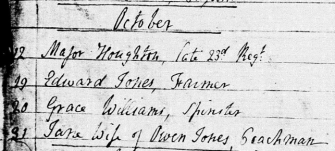 October
12 Major Houghton, late 23d Regt.
19 Edward Jones, Farmer
20 Grace Williams, Spinster
21 Jane Wife of Owen Jones, Coachman